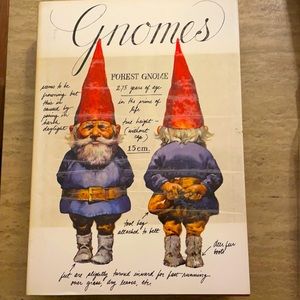 Gnomes
FOREST GNOME
275 years of age
in the prime of
life
true height –
(without
cap)
15 cm.
seems to be
frowning but
this is
caused by
going in
harsh
daylight
tool bag
attached to belt
deer fur
boots
feet are slightly turned inward for fast running
over grass, dry leaves, etc